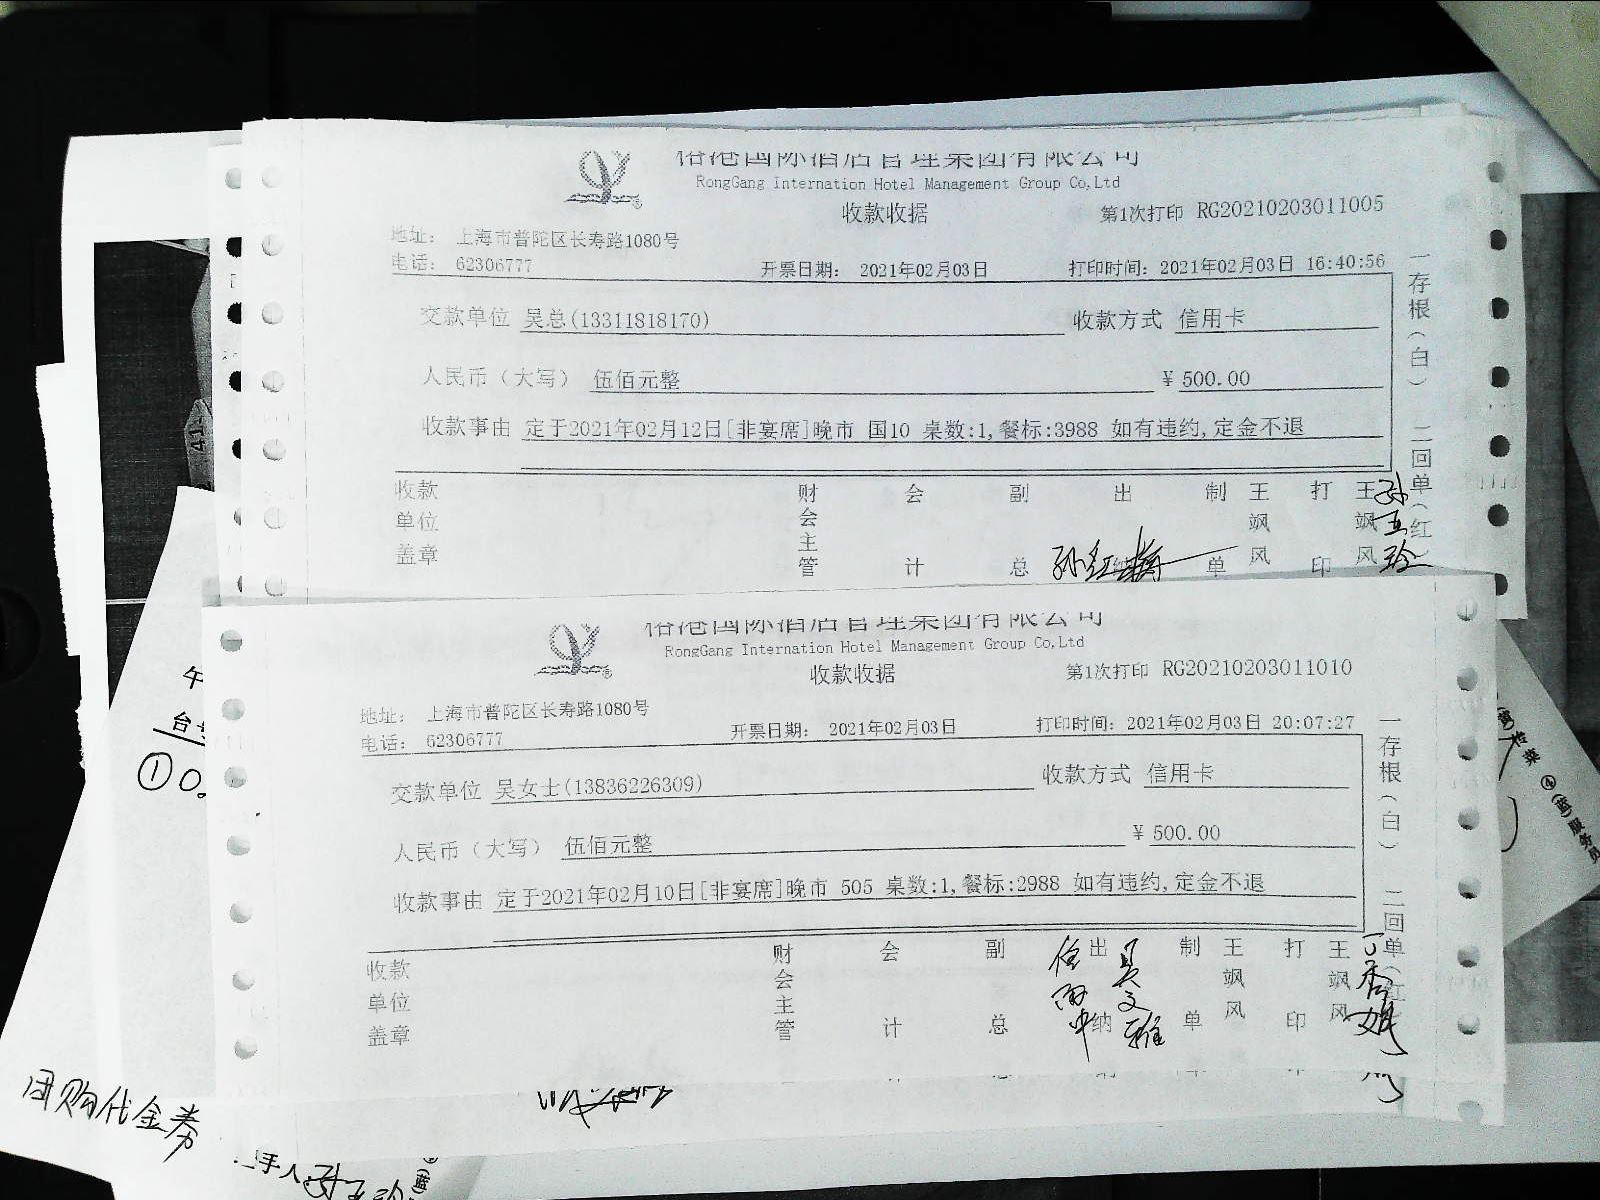 国际酒店管理集团有限公司
RongGang Internation Hotel Management Group Co,Ltd
收款收据
第1次打印 RG20210203011005
地址： 上海市普陀区长寿路1080号
电话： 62306777
开票日期： 2021年02月03日
打印时间：2021年02月03日 16:40:56
交款单位 吴总(13311818170)
收款方式 信用卡
人民币（大写） 伍佰元整
¥ 500.00
收款事由 定于2021年02月12日[非宴席]晚市 国10 桌数:1,餐标:3988 如有违约,定金不退
一存根（白） 二回单（红）
收款单位盖章
财会主管
会计
副总
出纳
孙红梅
制单
王飒风
打印
王飒风
孙玉玲
国际酒店管理集团有限公司
RongGang Internation Hotel Management Group Co,Ltd
收款收据
第1次打印 RG20210203011010
地址： 上海市普陀区长寿路1080号
电话： 62306777
开票日期： 2021年02月03日
打印时间：2021年02月03日 20:07:27
交款单位 吴女士(13836226309)
收款方式 信用卡
人民币（大写） 伍佰元整
¥ 500.00
收款事由 定于2021年02月10日[非宴席]晚市 505 桌数:1,餐标:2988 如有违约,定金不退
一存根（白） 二回单（红）
收款单位盖章
财会主管
会计
副总
出纳
制单
王飒风
打印
王飒风
午
台
①
传菜 ④(蓝)服务员
团购代金券
手人
(蓝)